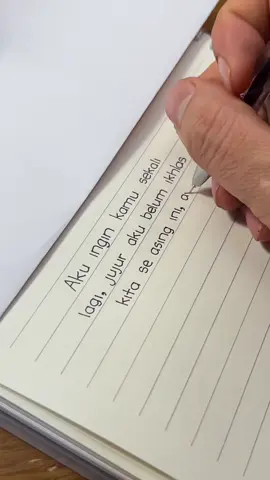 Aku ingin kamu sekali
lagi, jujur aku belum ikhlas
kita se asing ini, a